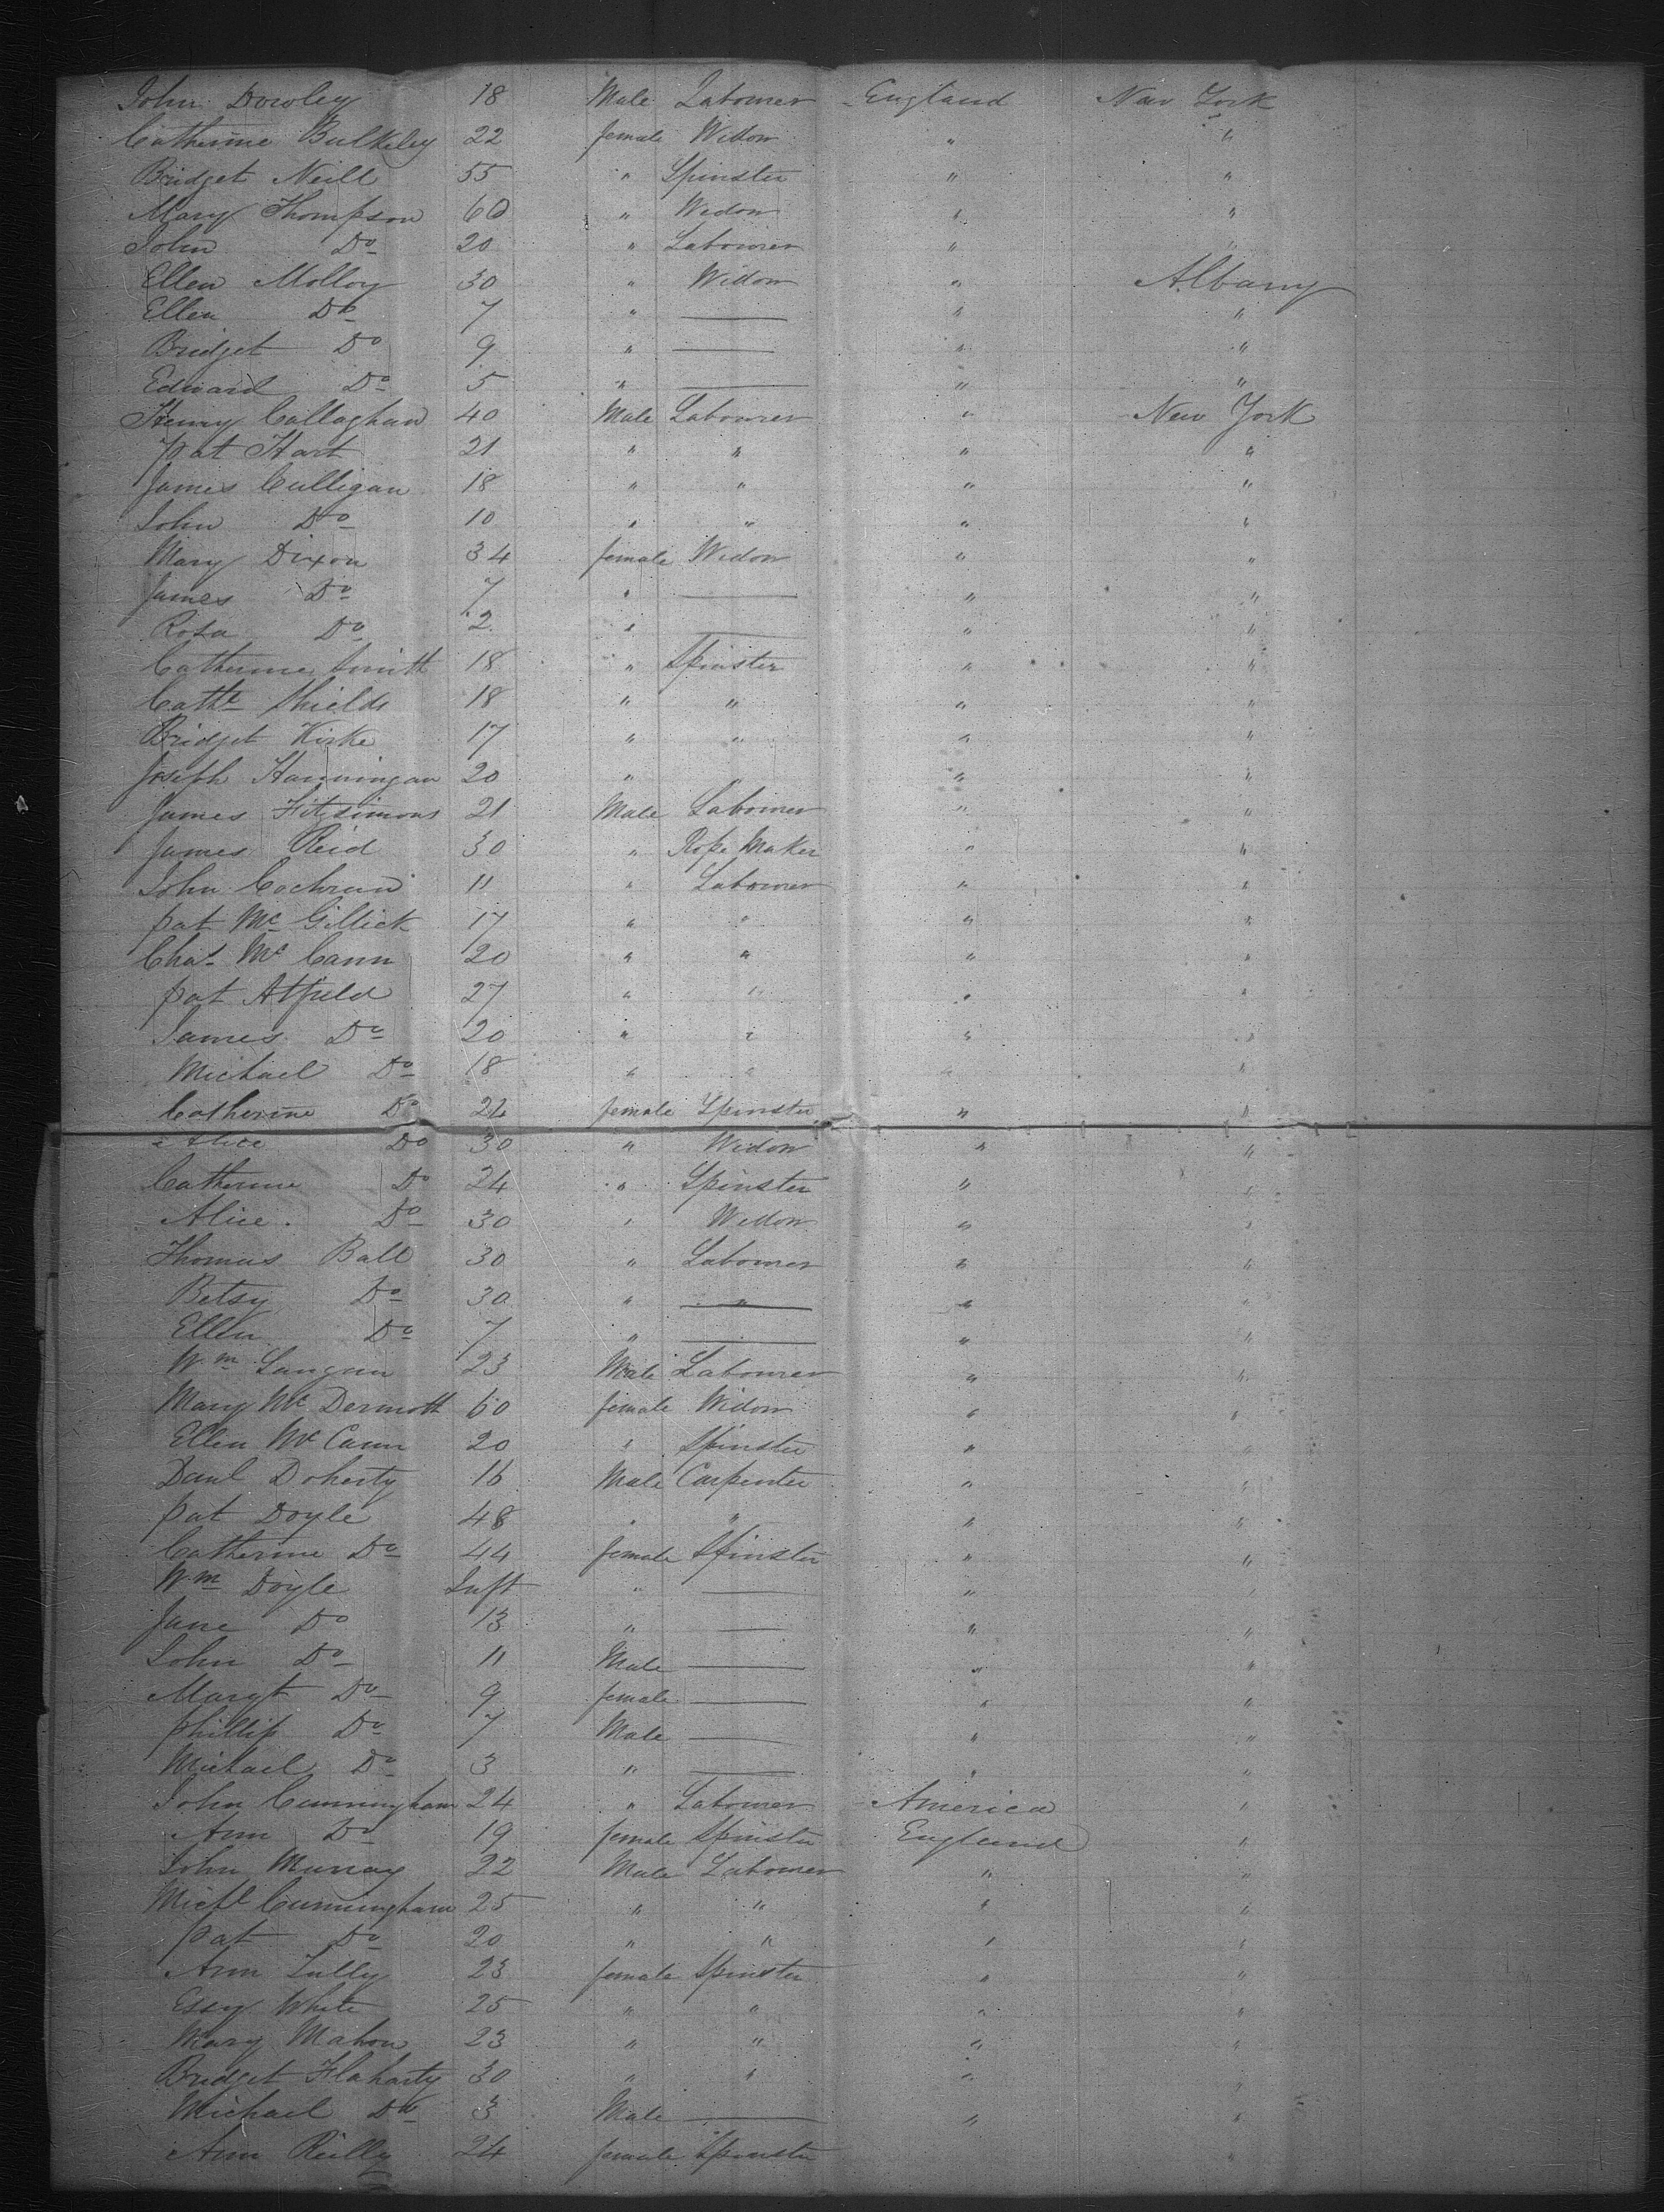 John Dowley 18 Male Labourer England New York
Catherine Bulkeley 22 female Widow " "
Bridget Neill 55 " Spinster " "
Mary Thompson 60 " Widow " "
John Do 20 " Labourer " "
Ellen Molloy 30 " Widow " Albany
Ellen Do 7 " — " "
Bridget Do 9 " — " "
Edward Do 5 " — " "
Henry Callaghan 40 Male Labourer " New York
pat Hart 21 " " " "
James Culligan 18 " " " "
John Do 10 " " " "
Mary Dixon 34 female Widow " "
James Do 7 " — " "
Rosa Do 2 " — " "
Catherine Smith 18 " Spinster " "
Cathe Shields 18 " " " "
Bridget Kirke 17 " " " "
Joseph Hanningan 20 " " "
James Fitzsimons 21 Male Labourer " "
James Reid 30 " Rope Maker " "
John Cochran 11 " Labourer " "
pat Mc Gillick 17 " " " "
Chas Mc Cann 20 " " " "
pat Atfield 27 " " " "
James Do 20 " " " "
Michael Do 18 " " " "
Catherine Do 24 female Spinster " "
Alice Do 30 " Widow " "
Catherine Do 24 " Spinster " "
Alice Do 30 " Widow " "
Thomas Ball 30 " Labourer " "
Betsy Do 30 " — " "
Ellen Do 7 " — " "
Wm Langan 23 Male Labourer " "
Mary Mc Dermott 60 female Widow " "
Ellen Mc Cann 20 " Spinster " "
Danl Doherty 16 Male Carpenter " "
pat Doyle 48 " " " "
Catherine Do 44 female Spinster " "
Wm Doyle Inft " — " "
Jane Do 13 " — " "
John Do 11 Male — " "
Margt Do 9 female — " "
phillip Do 7 Male — " "
Michael Do 3 " — " "
John Cunningham 24 " Labourer America "
Ann Do 19 female Spinster England "
John Murray 22 Male Labourer " "
Michl Cunningham 25 " " " "
pat Do 20 " " " "
Ann Lully 23 female Spinster " "
Essy White 25 " " " "
Mary Mahon 23 " " " "
Bridget Flaharty 30 " " " "
Michael Do 3 Male — " "
Ann Reilly 24 female Spinster "